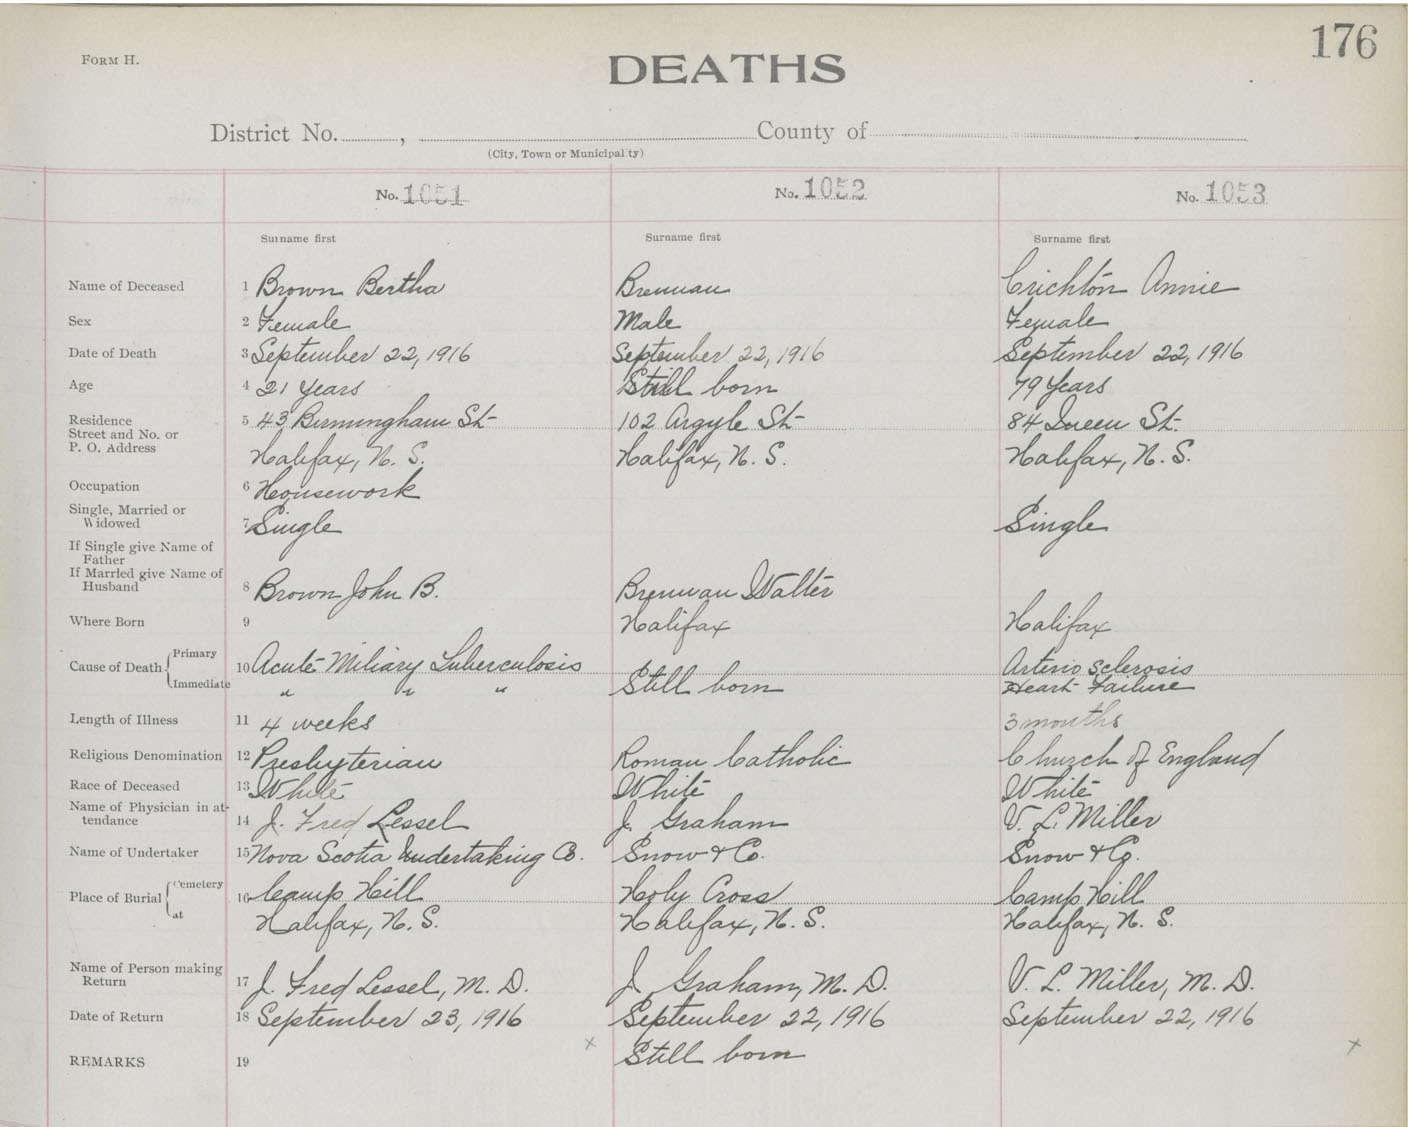 176
FORM H.
DEATHS
District No. , County of
(City, Town or Municipality)
No. 1051 No. 1052 No. 1053
Surname first Surname first Surname first
Name of Deceased 1 Brown Bertha Brennan Crichton Annie
Sex 2 Female Male Female
Date of Death 3 September 22, 1916 September 22, 1916 September 22, 1916
Age 4 21 Years Still born 79 Years
Residence
Street and No. or 5 43 Birmingham St- 102 Argyle St- 84 Queen St.
P. O. Address Halifax, N. S. Halifax, N. S. Halifax, N. S.
Occupation 6 Housework
Single, Married or
Widowed 7 Single Single
If Single give Name of
Father
If Married give Name of
Husband 8 Brown John B. Brennan Walter
Where Born 9 Halifax Halifax
Cause of Death Primary 10 Acute Miliary Tuberculosis Arterio Sclerosis
Immediate " " " Still born Heart Failure
Length of Illness 11 4 weeks 3 months
Religious Denomination 12 Presbyterian Roman Catholic Church of England
Race of Deceased 13 White White White
Name of Physician in at-
tendance 14 J. Fred Lessel J. Graham V. L. Miller
Name of Undertaker 15 Nova Scotia Undertaking Co. Snow & Co. Snow & Co.
Place of Burial Cemetery 16 Camp Hill Holy Cross Camp Hill
at Halifax, N. S. Halifax, N. S. Halifax, N. S.
Name of Person making
Return 17 J. Fred Lessel, M. D. J. Graham, M. D. V. L. Miller, M. D.
Date of Return 18 September 23, 1916 September 22, 1916 September 22, 1916
x x
REMARKS 19 Still born